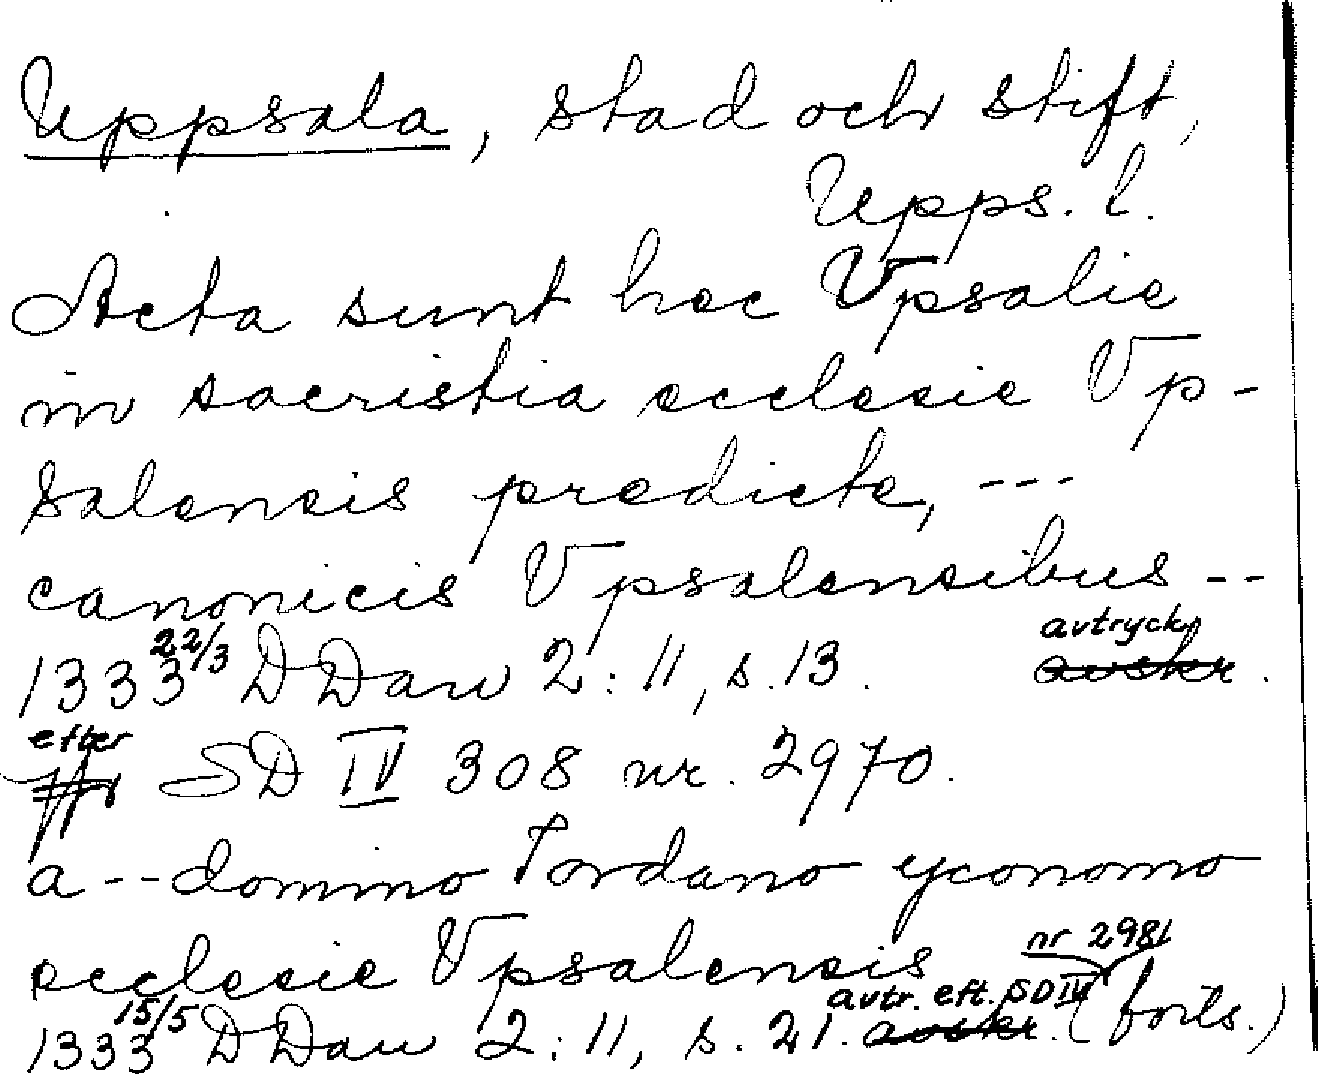 Uppsala, stad och stift,
Upps. l.
Acta sunt hec Vpsalie
in sacristia ecclesie Vp-
salensis predicte, ---
canonicis Vpsalensibus --
1333 22/3 DDan 2:11, s. 13. avtryck avskr.
efter SD IV 308 nr. 2970.
a -- domino Tordano yconomo
ecclesie Vpsalensis nr 2981
1333 15/5 DDan 2:11, s. 21. avtr. eft. SD IV avskr. (forts.)